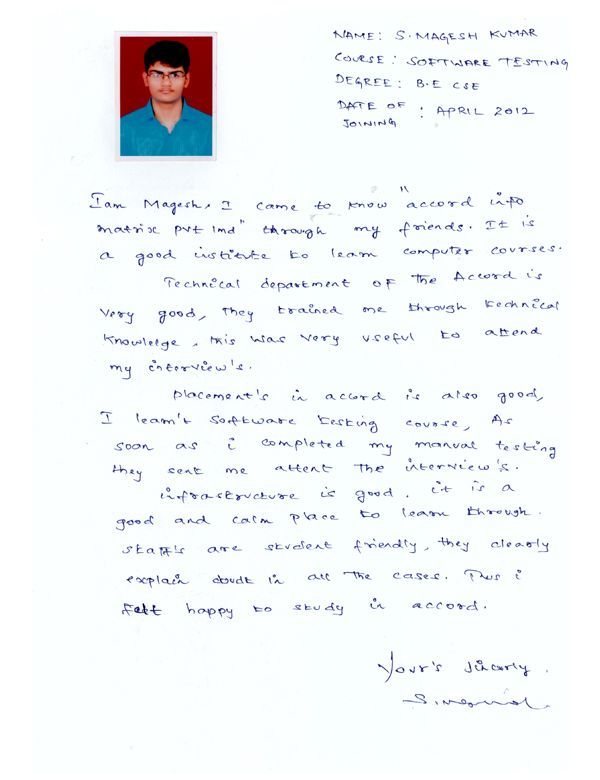 NAME: S.MAGESH KUMAR
COURSE: SOFTWARE TESTING
DEGREE: B.E CSE
DATE OF : APRIL 2012
JOINING
I am Magesh, I came to know "accord info
matrix pvt lmd" through my friends. It is
a good institute to learn computer courses.
Technical department of The Accord is
very good, they trained me through technical
knowlege, this was very useful to attend
my interview's.
placement's in accord is also good,
I learn't software testing course, As
soon as i completed my manual testing
they sent me attent The interview's.
infrastructure is good. it is a
good and calm place to learn through.
staff's are student friendly, they clearly
explain doubt in all The cases. Thus i
felt happy to study in accord.
Your's sincerly.